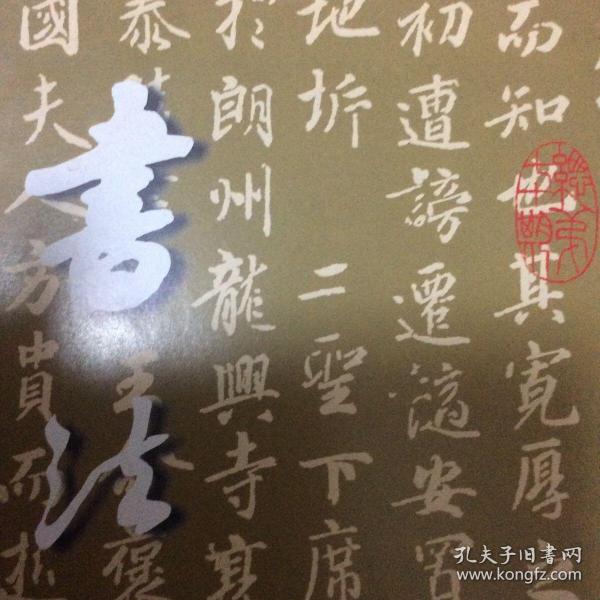 書法
而知也其寬厚
初遭謗遷謫安置
地坼二聖下席
於朗州龍興寺寘
泰王令褒
國夫人方貴而
孔夫子旧书网
www.kongfz.com